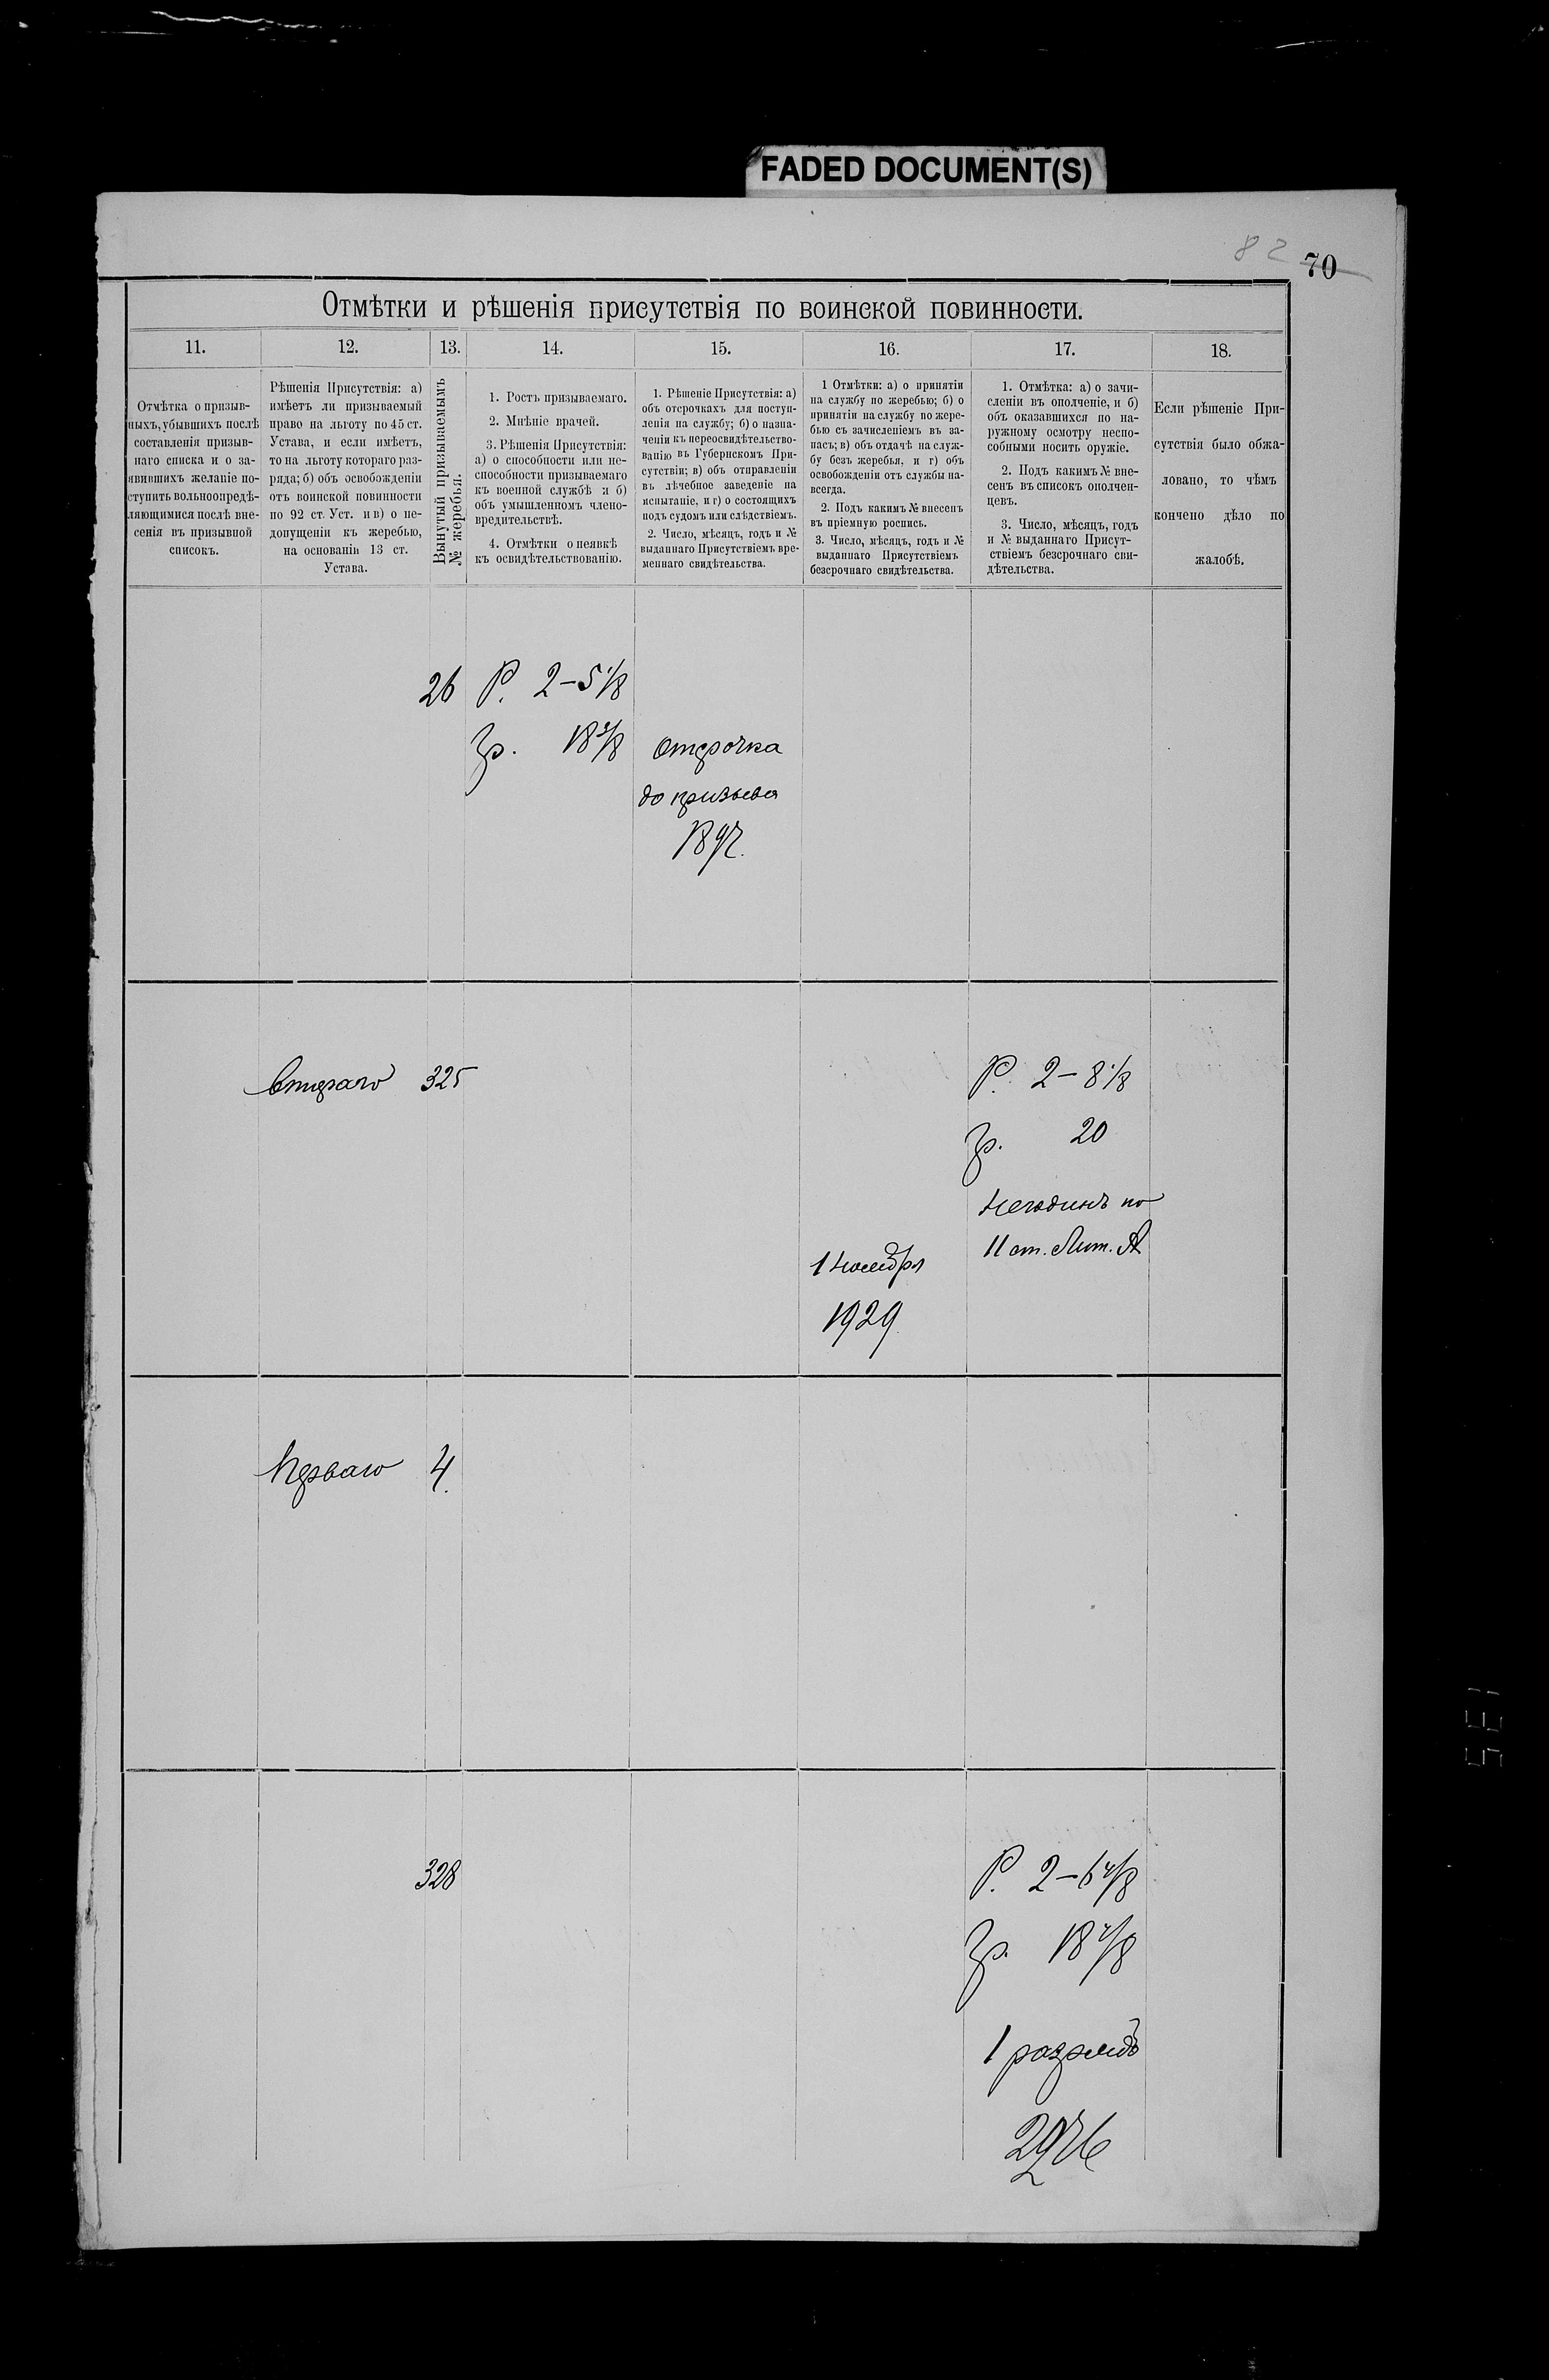 FADED DOCUMENT(S)
82
70
Отмѣтки и рѣшенія присутствія по воинской повинности.
11.
12.
13.
14.
15.
16.
17.
18.
Отмѣтка о призыв-
ныхъ, убывшихъ послѣ
составленія призыв-
наго списка и о за-
явившихъ желаніе по-
ступить вольноопредѣ-
ляющимися послѣ вне-
сенія въ призывной
списокъ.
Рѣшенія Присутствія: а)
имѣетъ ли призываемый
право на льготу по 45 ст.
Устава, и если имѣетъ,
то на льготу котораго раз-
ряда; б) объ освобожденіи
отъ воинской повинности
по 92 ст. Уст. и в) о не-
допущеніи къ жеребью,
на основаніи 13 ст.
Устава.
Вынутый призываемымъ
№ жеребья.
1. Ростъ призываемаго.
2. Мнѣніе врачей.
3. Рѣшенія Присутствія:
а) о способности или не-
способности призываемаго
къ военной службѣ и б)
объ умышленномъ члено-
вредительствѣ.
4. Отмѣтки о неявкѣ
къ освидѣтельствованію.
1. Рѣшеніе Присутствія: а)
объ отсрочкахъ для поступ-
ленія на службу; б) о назна-
ченіи къ переосвидѣтельство-
ванію въ Губернскомъ При-
сутствіи; в) объ отправленіи
въ лѣчебное заведеніе на
испытаніе, и г) о состоящихъ
подъ судомъ или слѣдствіемъ.
2. Число, мѣсяцъ, годъ и №
выданнаго Присутствіемъ вре-
меннаго свидѣтельства.
1 Отмѣтки: а) о принятіи
на службу по жеребью; б) о
принятіи на службу по жере-
бью съ зачисленіемъ въ за-
пасъ; в) объ отдачѣ на служ-
бу безъ жеребья, и г) объ
освобожденіи отъ службы на-
всегда.
2. Подъ какимъ № внесенъ
въ пріемную роспись.
3. Число, мѣсяцъ, годъ и №
выданнаго Присутствіемъ
безсрочнаго свидѣтельства.
1. Отмѣтка: а) о зачи-
сленіи въ ополченіе, и б)
объ оказавшихся по на-
ружному осмотру неспо-
собными носить оружіе.
2. Подъ какимъ № вне-
сенъ въ списокъ ополчен-
цевъ.
3. Число, мѣсяцъ, годъ
и № выданнаго Присут-
ствіемъ безсрочнаго сви-
дѣтельства.
Если рѣшеніе При-
сутствія было обжа-
ловано, то чѣмъ
кончено дѣло по
жалобѣ.
26 Р. 2-5 1/8
Гр. 18 3/8 отсрочка
до призыва
1897.
Втораго 325 Р. 2-8 1/8
Гр. 20
Негоденъ по
11 ст. Лит. А
1 Ноября
1929
Перваго 4.
328 Р. 2-6 4/8
Гр. 18 4/8
1 разрядъ
135